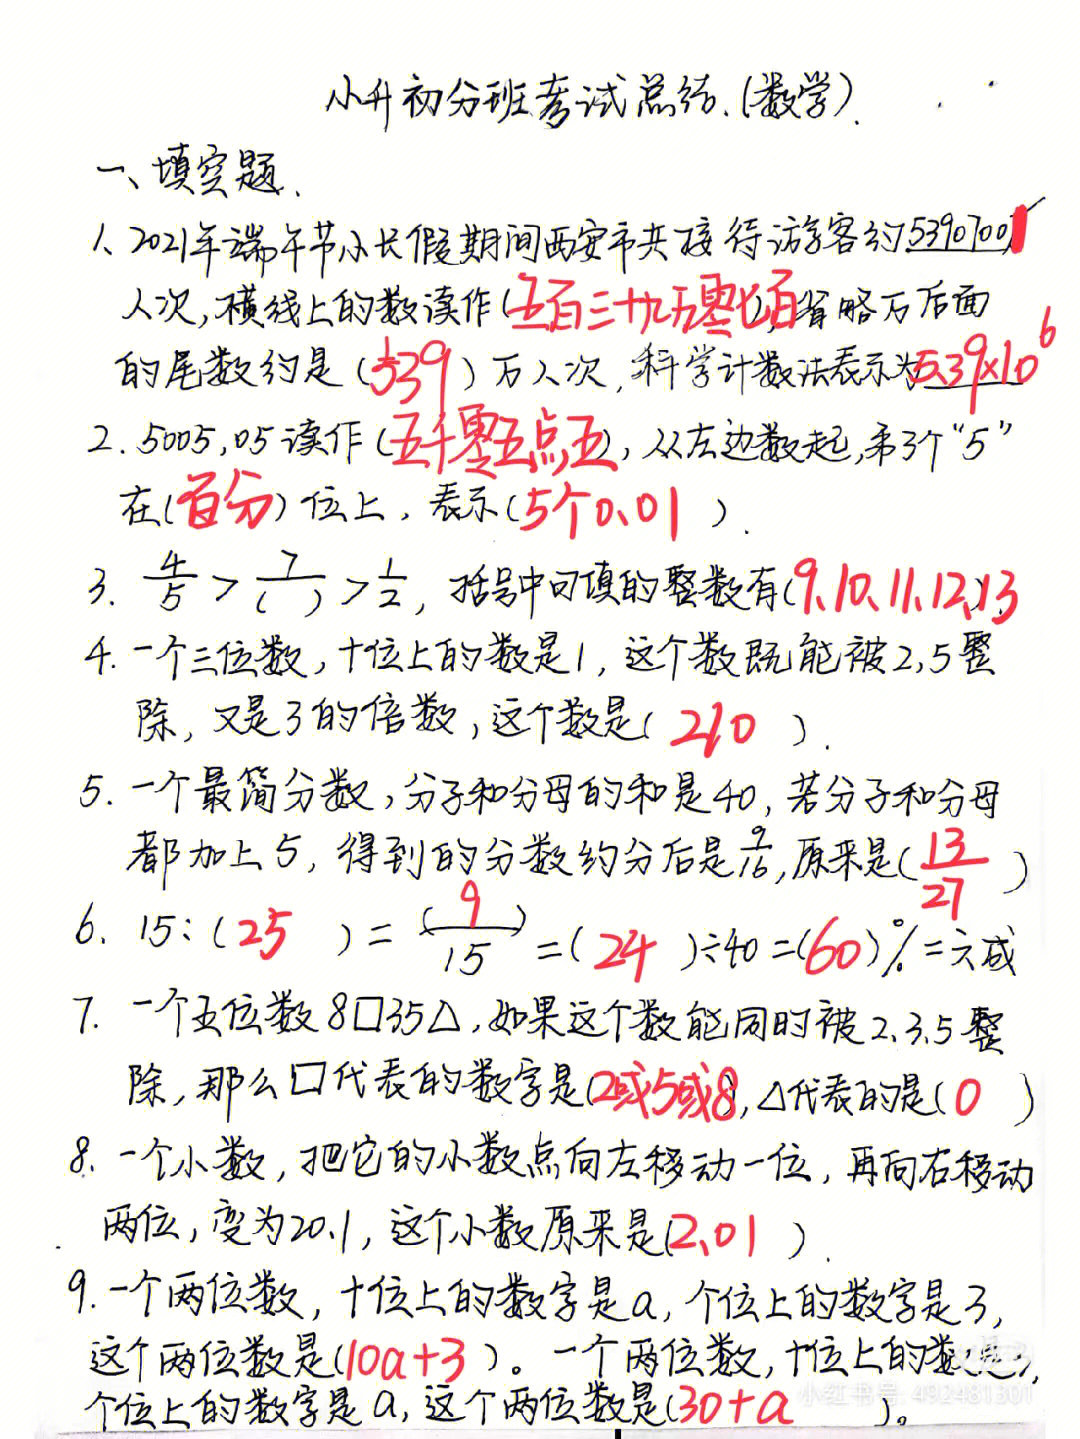 小升初分班考试总结.(数学).
一、填空题.
1、2021年端午节小长假期间西安市共接待游客约5390700
人次,横线上的数读作(五百三十九万零七百),省略万后面
的尾数约是(539)万人次,科学计数法表示为5.39×10⁶
2.5005.05读作(五千零五点五),从左边数起,第3个“5”
在(百分)位上,表示(5个0.01).
3. 4/5 > 7/( ) > 1/2, 括号中可填的整数有(9、10、11、12、13).
4.一个三位数,十位上的数是1,这个数既能被2,5整
除,又是3的倍数,这个数是(210).
5.一个最简分数,分子和分母的和是40,若分子和分母
都加上5,得到的分数约分后是9/16,原来是(13/27)
6、15:(25)=(9)/15=(24)÷40=(60)%=六成
7.一个五位数8□35△,如果这个数能同时被2.3.5整
除,那么□代表的数字是(2或5或8),△代表的是(0)
8.一个小数,把它的小数点向左移动一位,再向右移动
两位,变为20.1,这个小数原来是(2.01).
9.一个两位数,十位上的数字是a,个位上的数字是3,
这个两位数是(10a+3)。一个两位数,十位上的数是3,
个位上的数字是a,这个两位数是(30+a)。
小红书号: 492481301